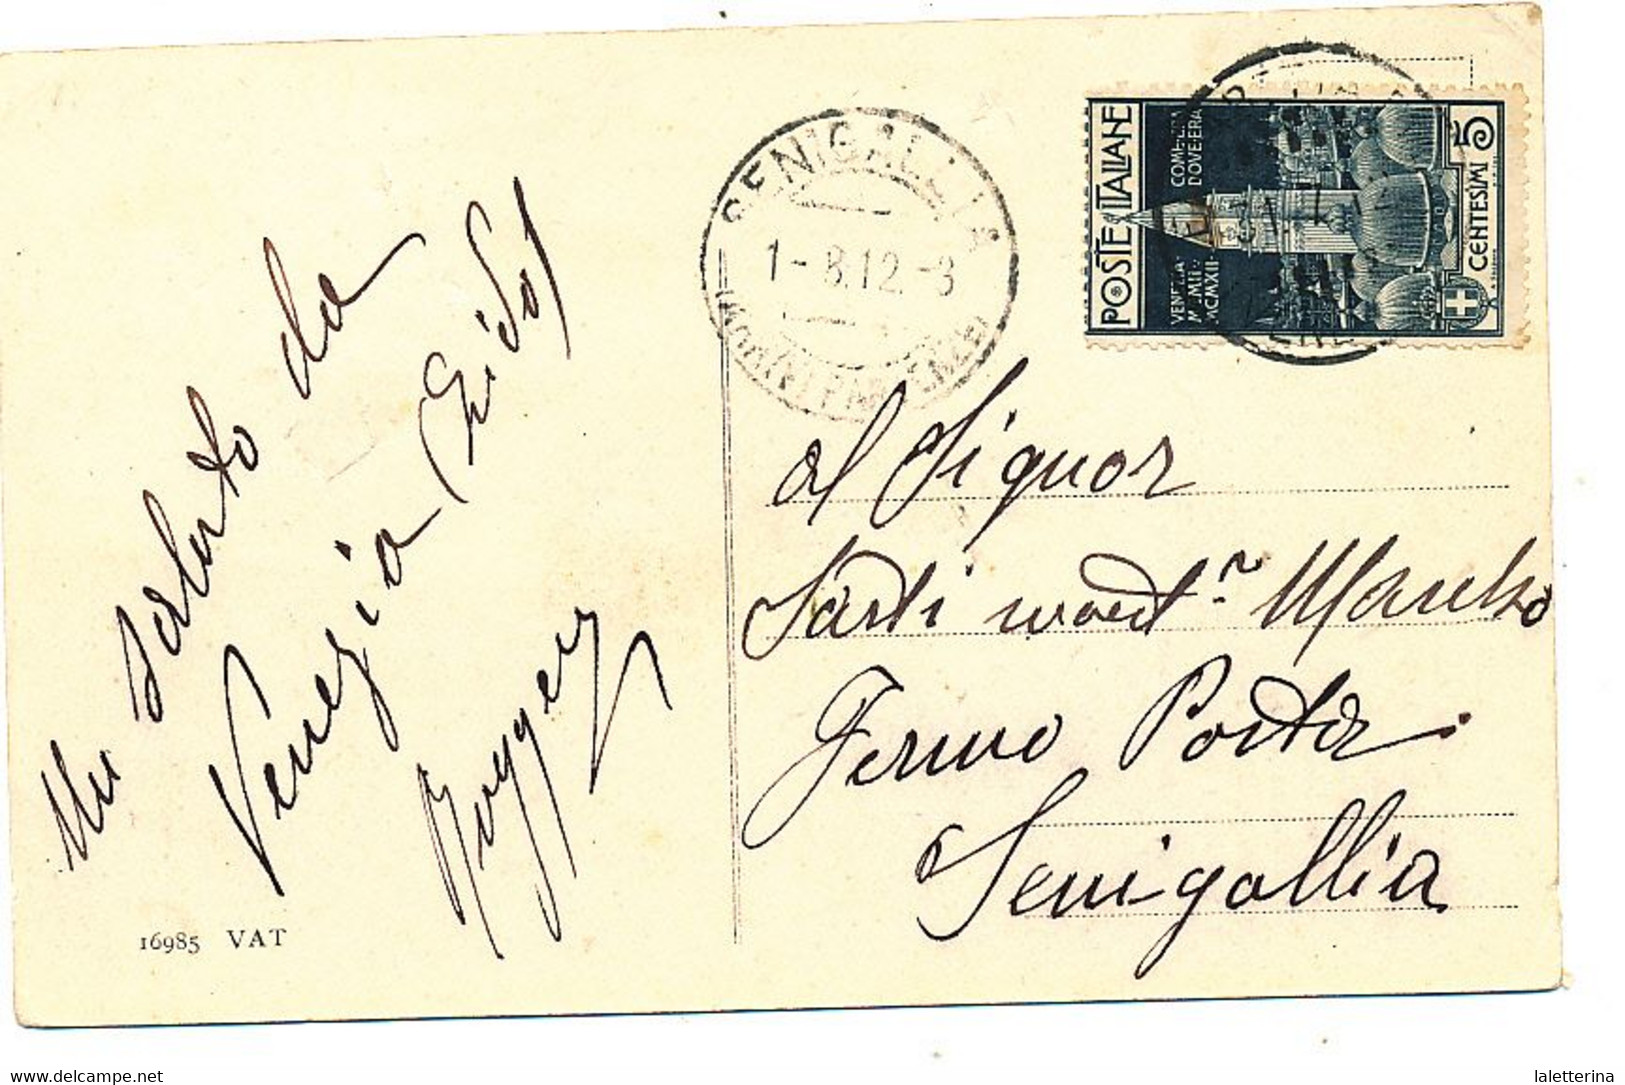 Un saluto da
Venezia (Lido)
Ruggero
16985 VAT
SENIGALLIA
1-8.12.-8
POSTE ITALIANE
COM'ERA
DOV'ERA
VENEZIA
MCMXII
CENTESIMI 5
al Signor
Sarti
Fermo Posta
Senigallia
delcampe.net
laletterina